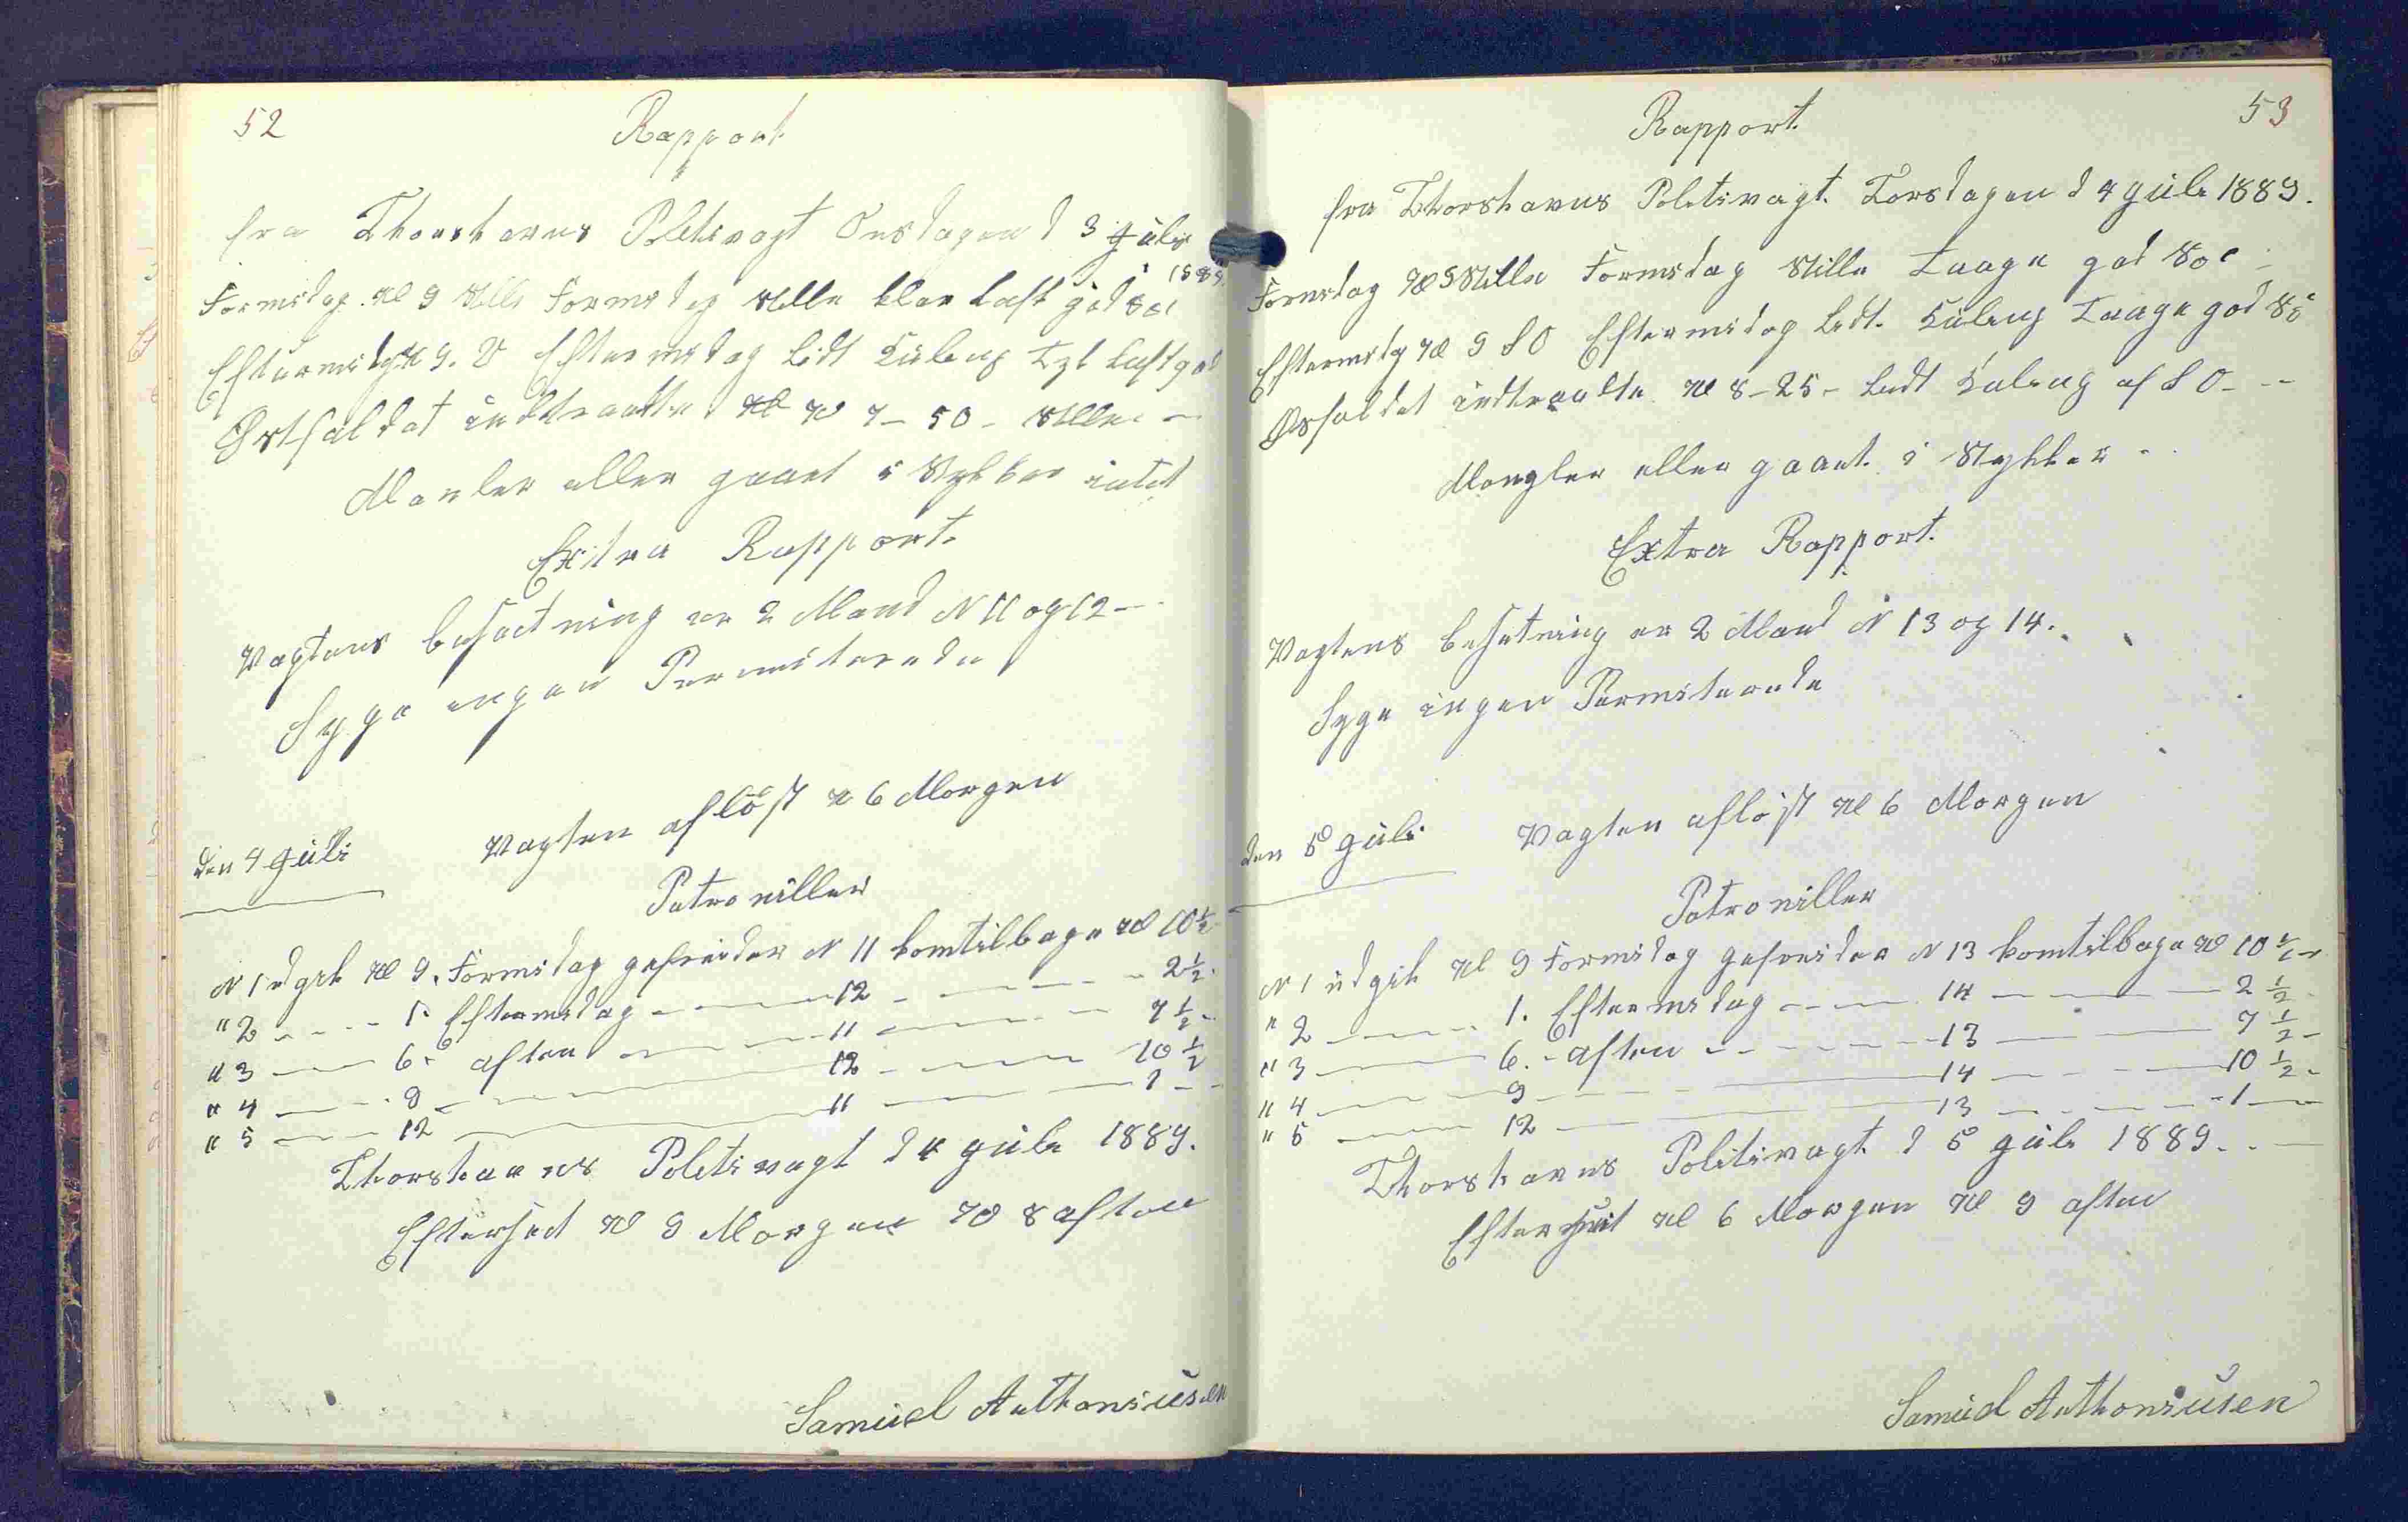 52
Rapport
fra Thorshavns Politivagt Onsdagen d 3 Juli
1889.
Formidag. Kl 9 Stille Formidag Stille klar luft god
Eftermidg Kl 9. V Eftermidag lidt Kuling Tyk luft god
Postfaldet indtraadte Kl 7-50- Stille -
Manler eller gaaet i Stykker intet
Extra Rapport.
Vagtens besætning er 2 Mand N 11 og 12 -
Syge ingen Permiterede
den 4 Juli Vagten afløst Kl 6 Morgen
Patroniller
N 1 udgik Kl 9. Formidag gefreider N 11 komtilbage Kl 10 ½
" 2 - - - - 1. Eftermidag - - - 12 - - - - 2 ½ -
" 3 - - - 6 - aften - - - 11 - - - - 7 ½ -
" 4 - - - 9 - - - - 12 - - - - 10 ½
" 5 - - - 12 - - - - 11 - - - - 1 - -
Thorshavns Politivagt d 4 Juli 1889.
Efterset Kl 9 Morgen Kl 8 aften
Samuel Anthoniusen
53
Rapport.
fra Thorshavns Politivagt. Torsdagen d 4 Juli 1889.
Formidag Kl 9 Stille Formidag Stille Taage god
Eftermidg Kl 9 S O Eftermidag lidt. Kuling Taage god
indtraadte Kl 8-25- lidt Kuling af S O - -
Mangler eller gaaet i Stykker -
Extra Rapport.
Vagtens besetning er 2 Mand N 13 og 14.
Syge ingen Permiterede
den 5 Juli Vagten afløst Kl 6 Morgen
Patroniller
N 1 udgik Kl 9 Formidag gefreider N 13 komtilbage Kl 10 ½ -
" 2 - - - 1. Eftermidag - - - 14 - - - 2 ½ -
" 3 - - - 6. - aften - - - 13 - - - 7 ½ -
" 4 - - - 9 - - - 14 - - - 10 ½ -
" 5 - - - 12 - - - 13 - - - 1 -
Thorshavns Politivagt. d 5 Juli 1889. - -
Efterset Kl 6 Morgen Kl 9 aften
Samuel Anthoniusen